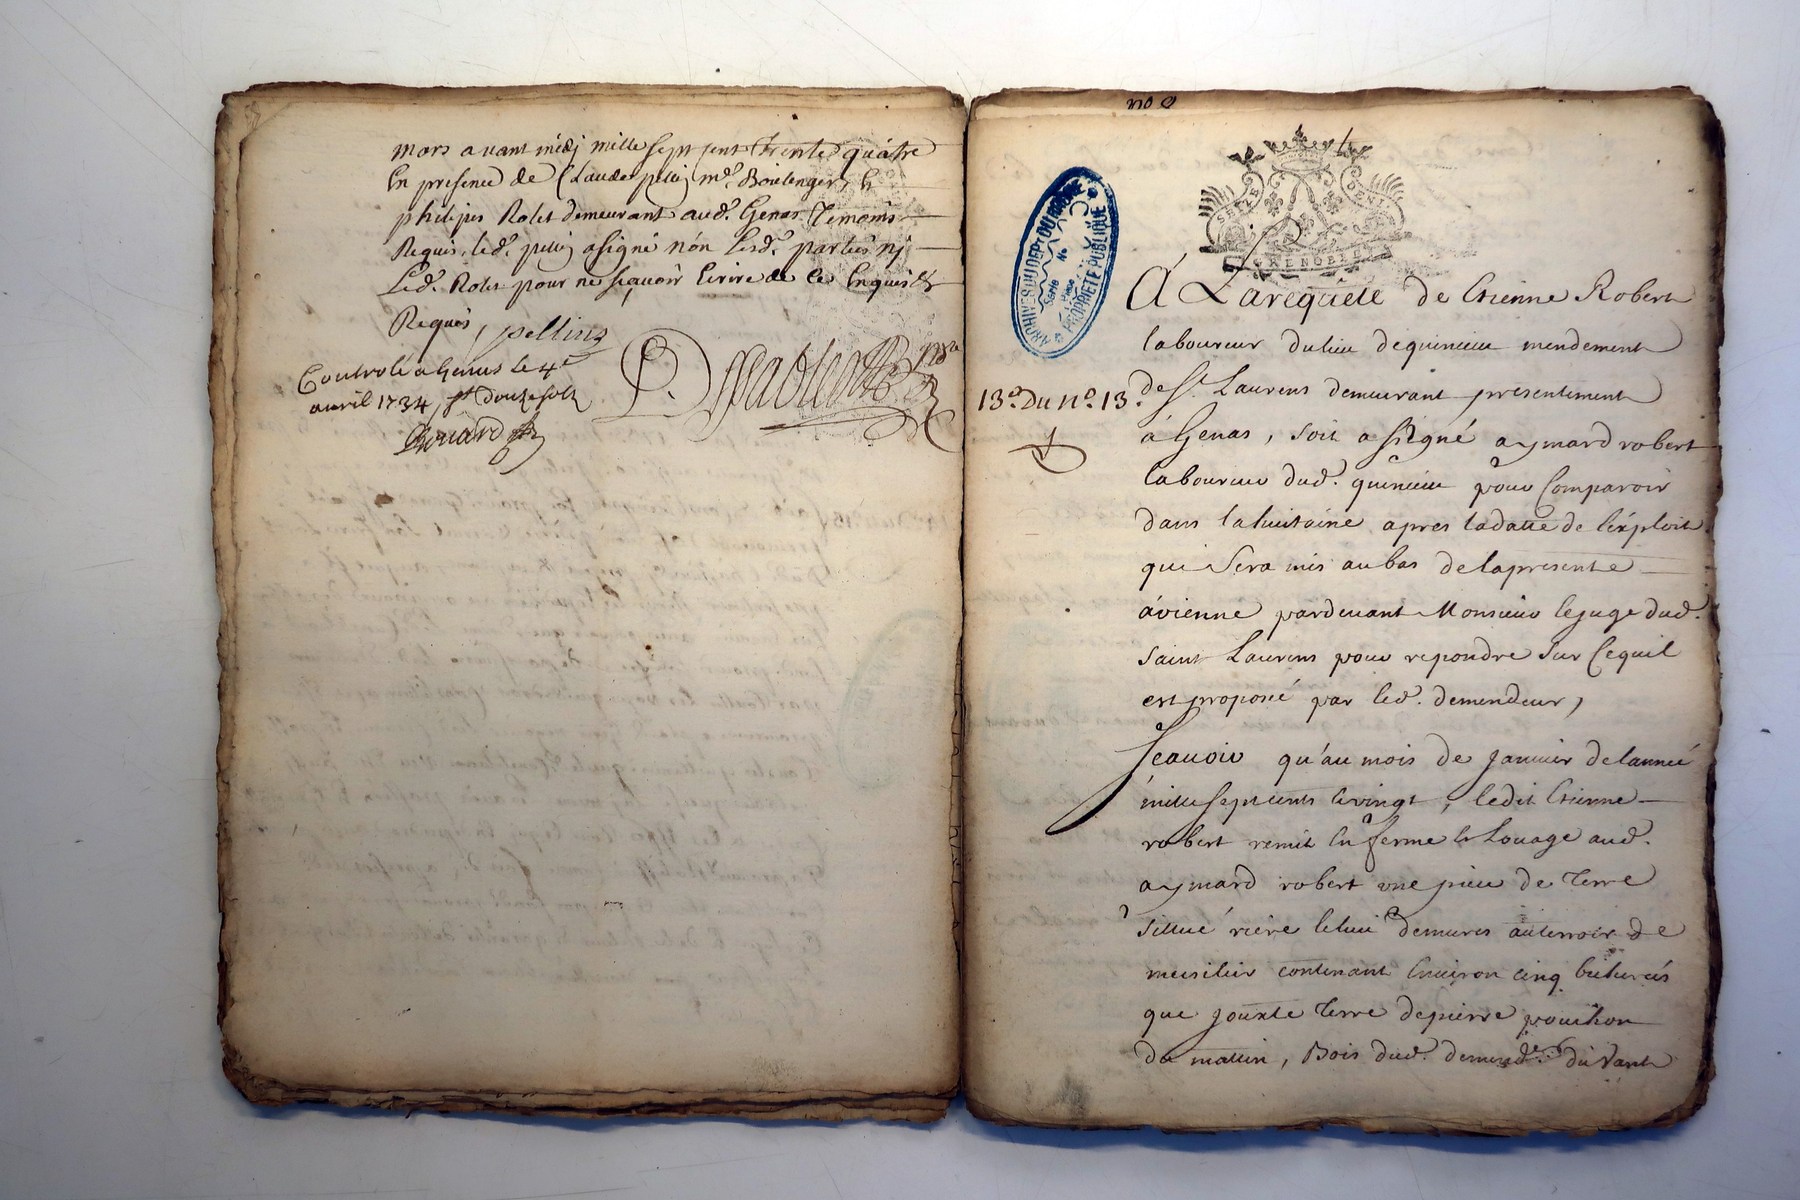 mars avant midj mille sept cent trente quatre
En presence de Claude pelin md. Boulenger, &
philipes Rolet demeurant aud. Genas Temoins
Requis, led. pelin a signé nón Lesd. parties nj
Led. Rolet pour ne sçavoir Ecrire de ce Enquis &
Requis, pellin
Controlé a Genas le 4e
avril 1734, st douze sols
no
13e. Du no. 13.
SEIZE DENI
GRENOBLE
ARCHIVES DU DEPt DU RHONE
Serie No
Piece
PROPRIETE PUBLIQUE
Á La requéte de Etienne Robert
laboureur du lieu de quincieu mendement
de St. Laurens demeurant presentement
á Genas, soit assigné aymard robert
laboureur dud. quincieu pour Comparoir
dans la huitaine apres la datte de l'exploit
qui Sera mis au bas de la presente
á vienne pardevant Monsieur le juge dud.
saint Laurens pour repondre sur Ce quil
est proposé par led. demendeur,
Scavoir qu'au mois de janvier de l'année
mille sept cents vingt, ledit Etienne
robert remit En ferme et Louage aud.
aymard robert une piece de terre
sittué riere le lieu de mures au terroir de
contenant Environ cinq bicherées
que jouxte terre de pierre
du mattin, Bois dud. demendr. du Vant